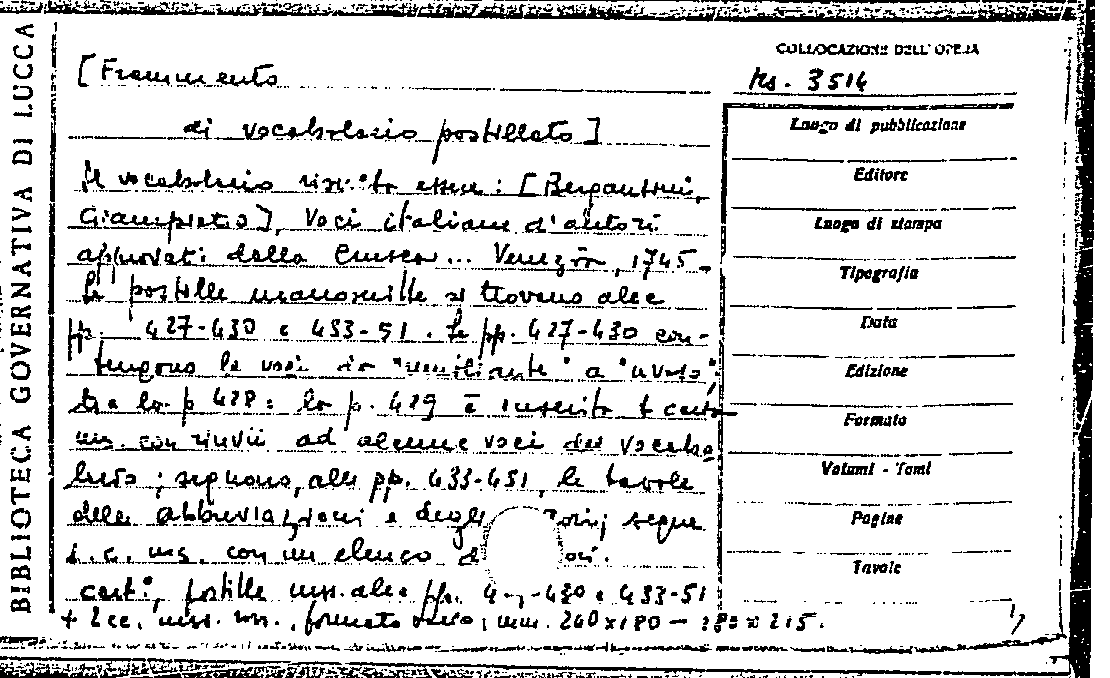 BIBLIOTECA GOVERNATIVA DI LUCCA
[Frammento
di vocabolario postillato]
Il vocabolario risulta essere: [Bergantini,
Giampietro], Voci italiane d'autori
approvati dalla Crusca... Venezia, 1745-
Le postille manoscritte si trovano alle
pp. 427-430 e 433-51. Le pp. 427-430 con-
tengono le voci da "umiliante" a "uvola";
tra la p 428 e la p. 429 è inserita 1 carta
ms. con rinvii ad alcune voci del vocabo
lario; seguono, alle pp. 433-451, le tavole
delle abbreviazioni e degli segue
1. c. ms. con un elenco
cart., postille mss. alle pp. -430 e 433-51
+ 2 cc. mss. , formato vario; mm. 240x180 — x 215.
COLLOCAZIONE DELL'OPERA
Ms. 3514
Luogo di pubblicazione
Editore
Luogo di stampa
Tipografia
Data
Edizione
Formato
Volumi - Tomi
Pagine
Tavole